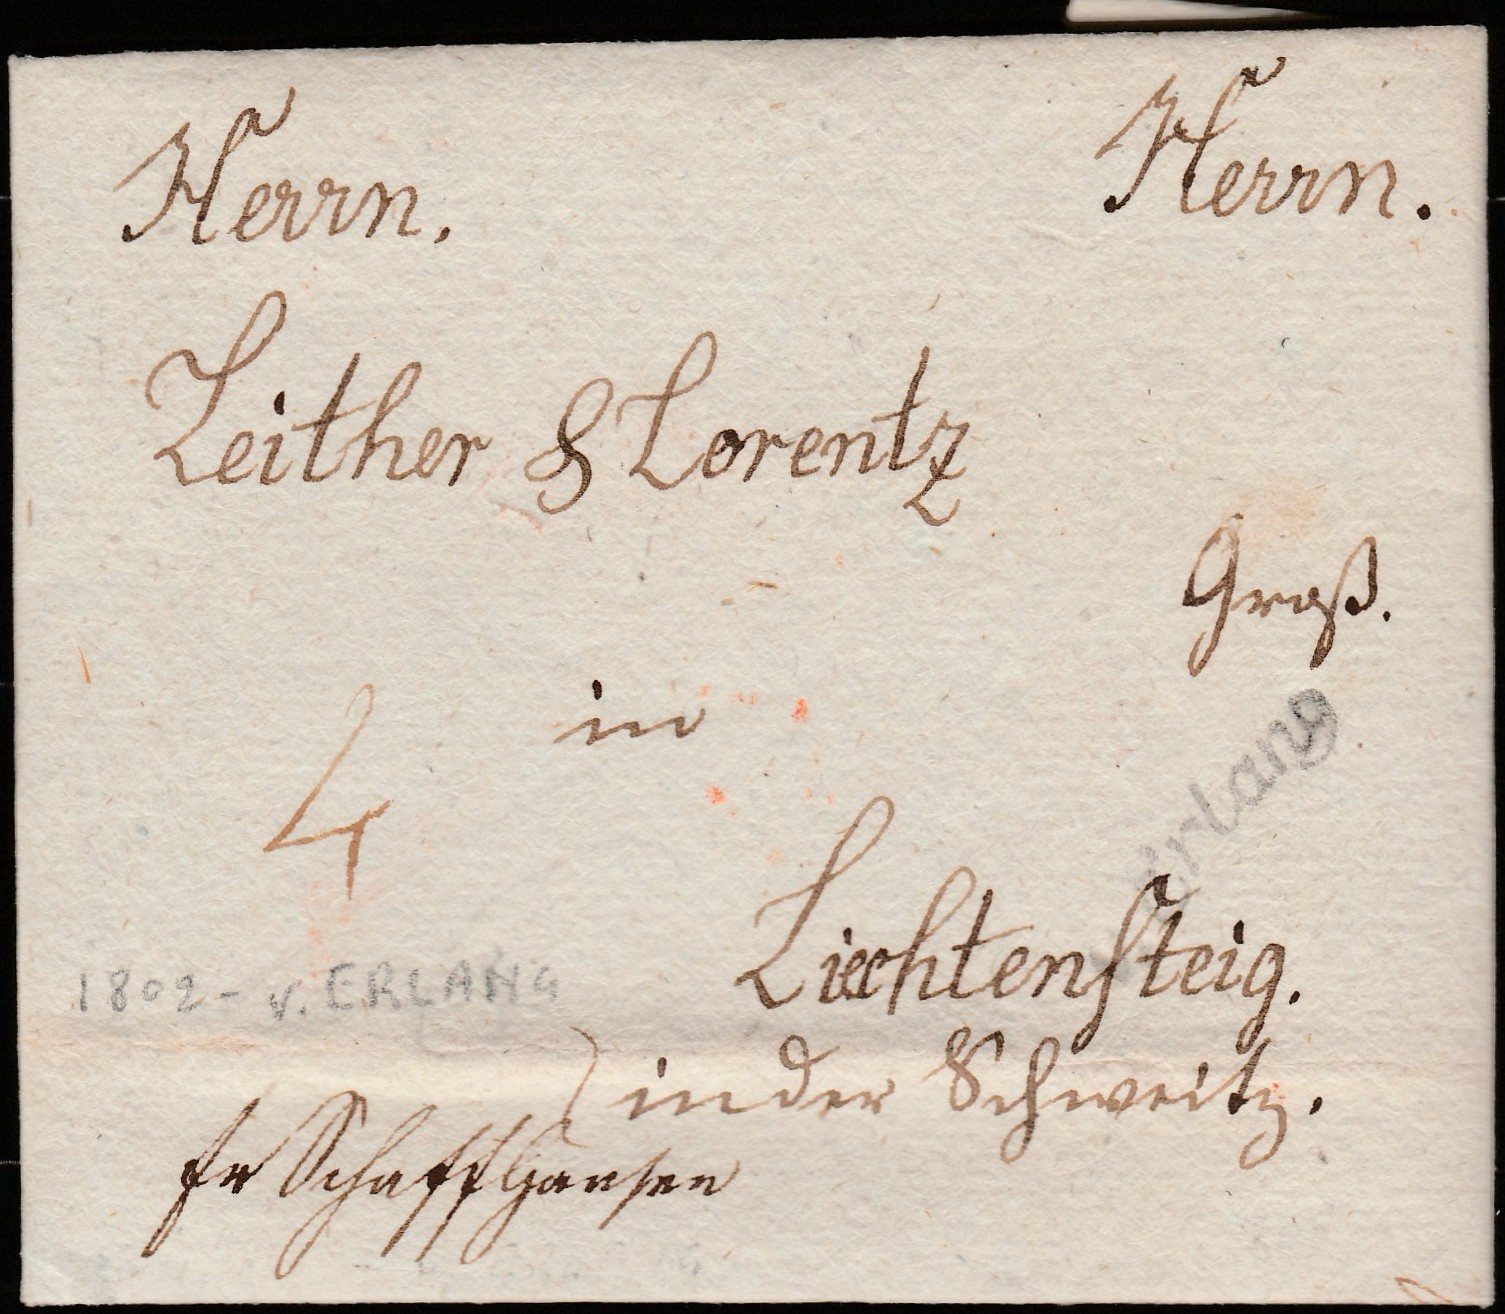 Herrn. Herrn.
Leither & Lorentz
Groß.
in
4
Erlang
Liechtensteig.
1802 - v. ERLANG
in der Schweitz.
fr Schaffhausen